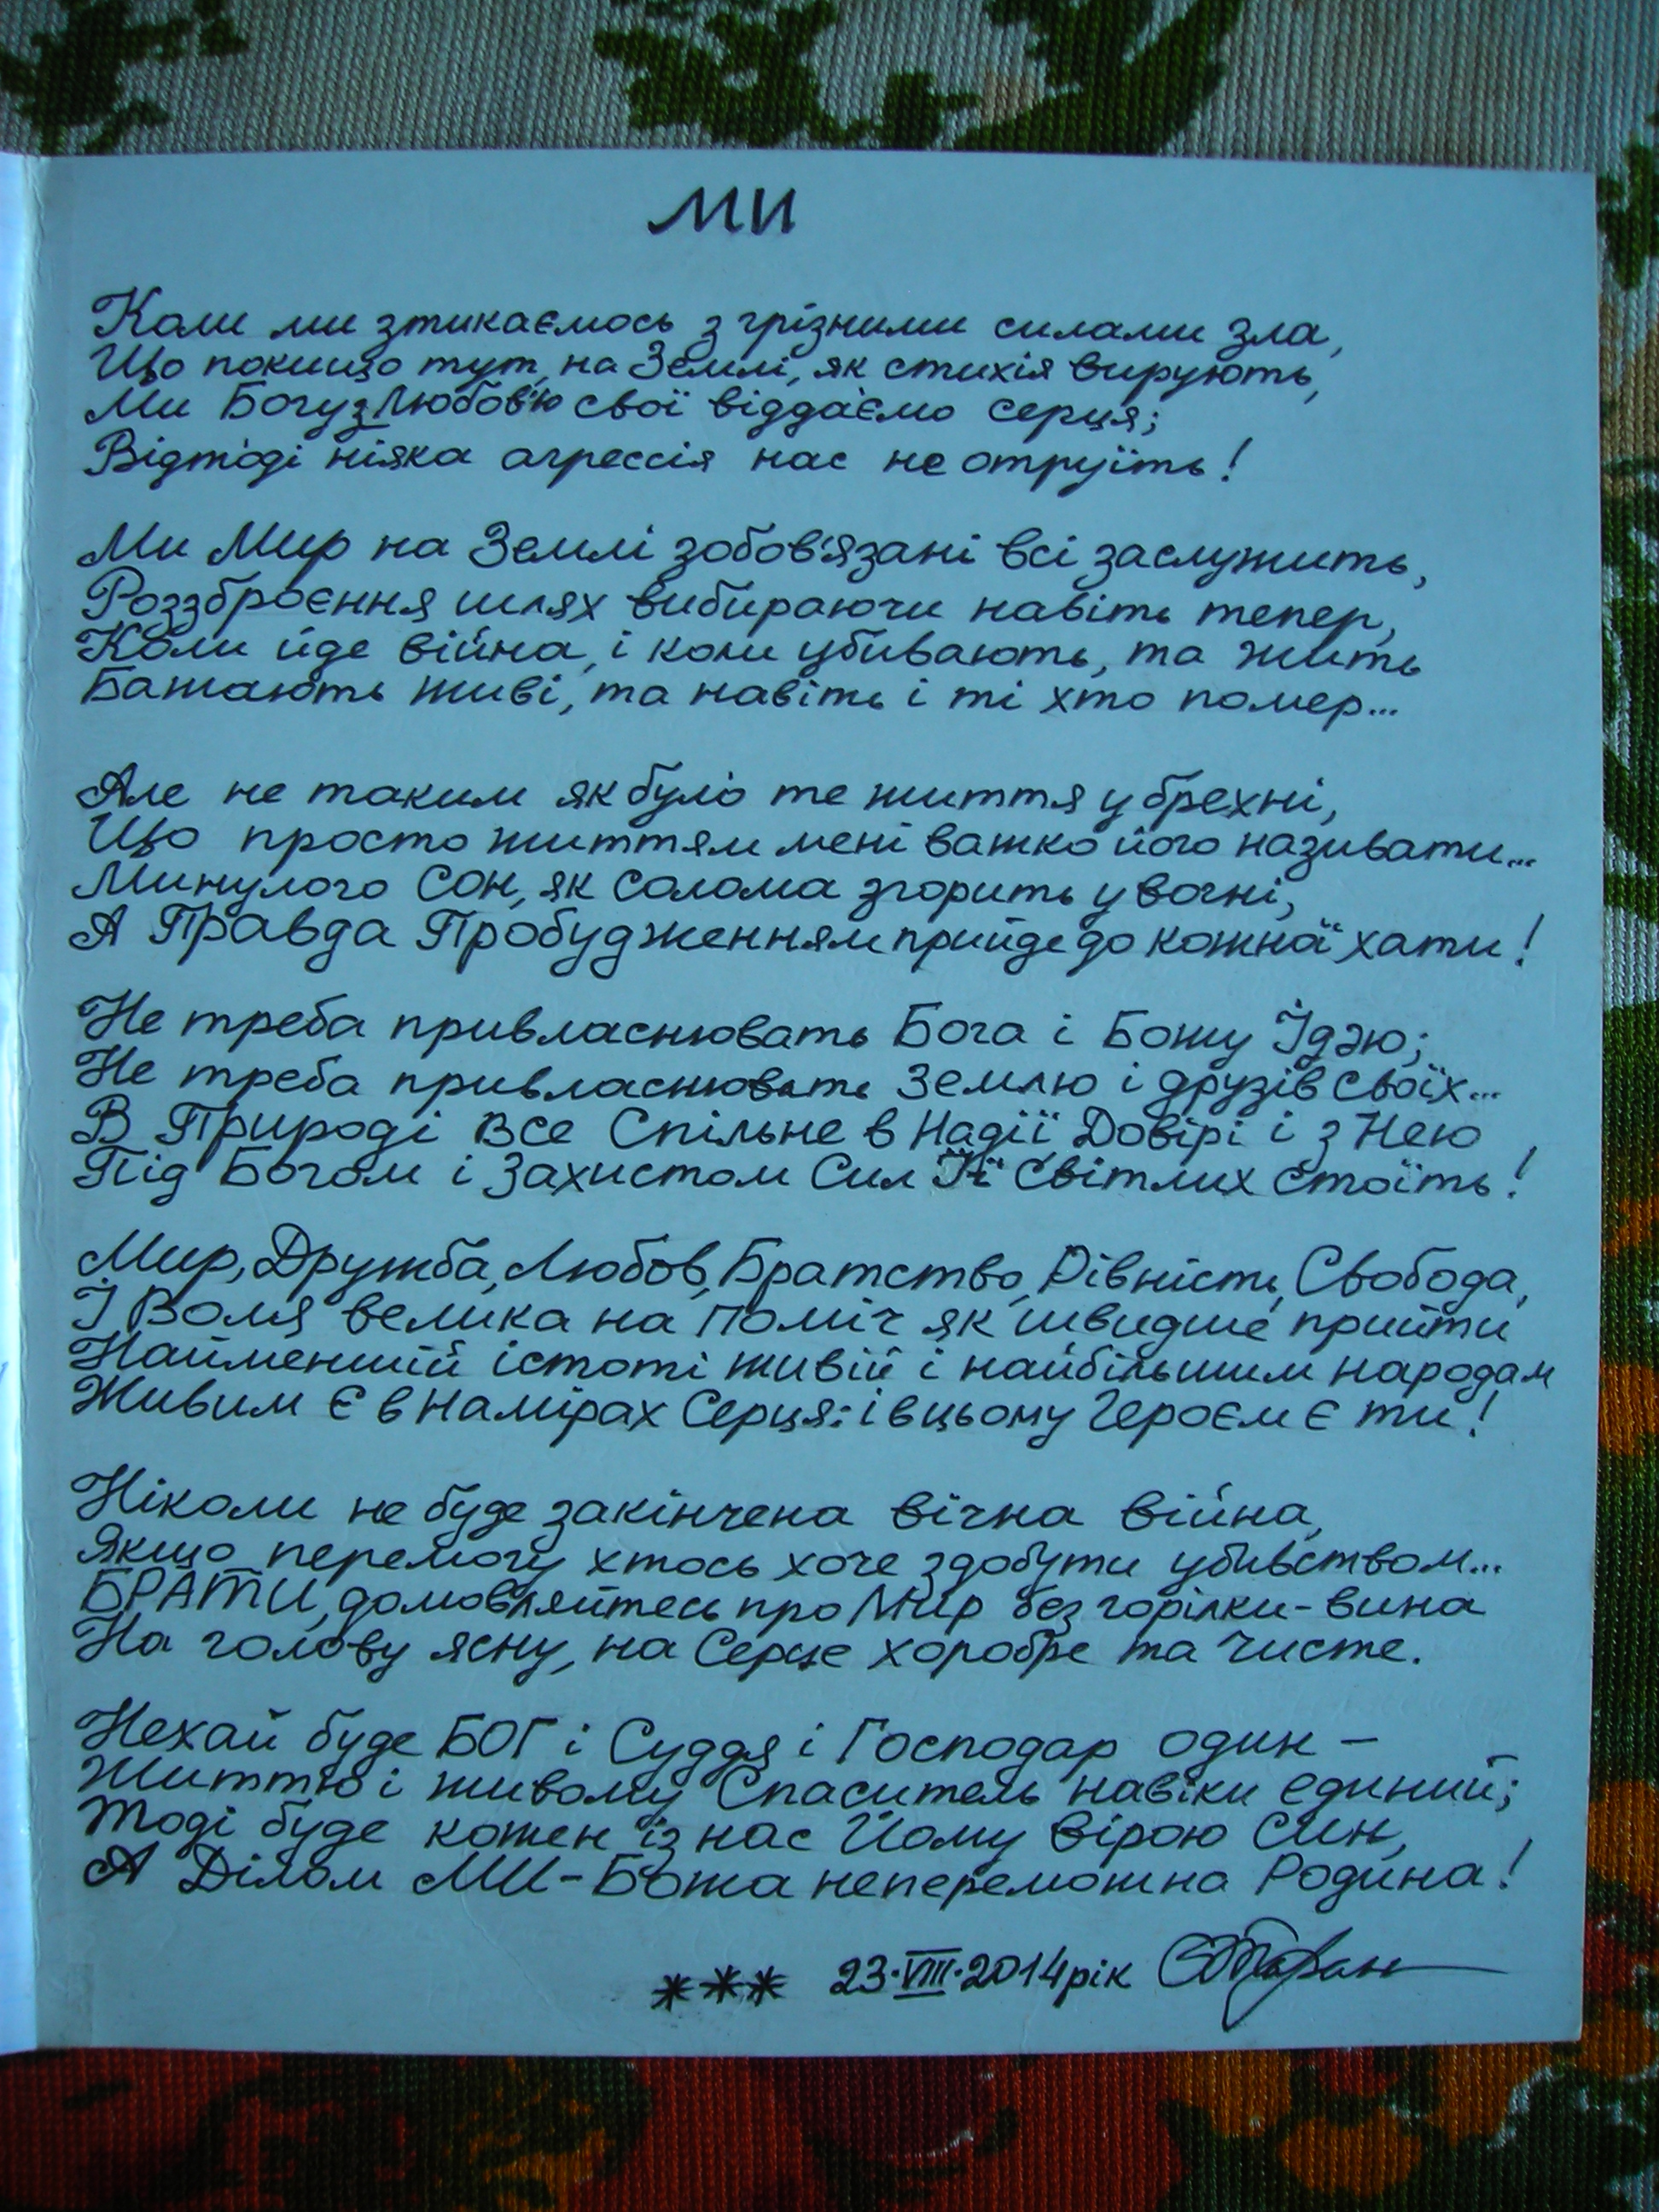 МИ
Коли ми зтикаємось з грізними силами зла,
Що покищо тут, на Землі, як стихія вирують,
Ми Богу з Любов'ю свої віддаємо серця;
Відтоді ніяка агрессія нас не отруїть!
Ми Мир на Землі зобов'язані всі заслужить,
Роззброєння шлях вибираючи навіть тепер,
Коли йде війна, і коли убивають, та жить
Бажають живі, та навіть і ті хто помер...
Але не таким як було те життя у брехні,
Що просто життям мені важко його називати...
Минулого Сон, як солома згорить у вогні,
А Правда Пробудженням прийде до кожної хати!
Не треба привласнювать Бога і Божу Ідэю;
Не треба привласнювать Землю і друзів своїх...
В Природі все Спільне в Надії, Довірі і з Нею
Під Богом і Захистом Сил Її Світлих стоїть!
Мир, Дружба, Любов, Братство, Рівність, Свобода,
І Воля велика на поміч як швидше прийти
Найменшій істоті живій і найбільшим народам
Живим Є в Намірах Серця: і в цьому Героєм Є ти!
Ніколи не буде закінчена вічна війна,
Якщо перемогу хтось хоче здобути убивством...
БРАТИ, домовляйтесь про Мир без горілки-вина
На голову ясну, на Серце хоробре та чисте.
Нехай буде БОГ і Суддя і Господар один –
Життю і живому Спаситель навіки єдиний;
Тоді буде кожен із нас Йому вірою Син,
А Ділом МИ - Божа непереможна Родина!
*** 23.VIII.2014 рік